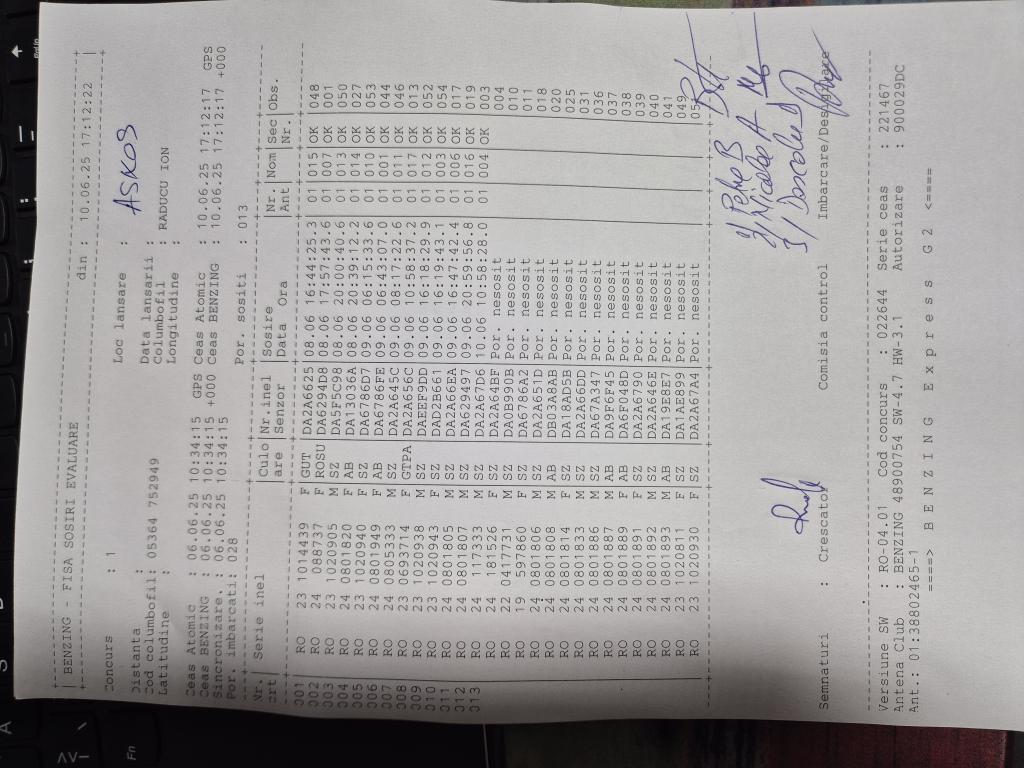 BENZING - FISA SOSIRI EVALUARE din : 10.06.25 17:12:22
Concurs : 1 Loc lansare : ASKOS
Distanta : Data lansarii :
Cod columbofil: 05364 752949 Columbofil : RADUCU ION
Latitudine : Longitudine :
Ceas Atomic : 06.06.25 10:34:15 GPS Ceas Atomic : 10.06.25 17:12:17 GPS
Ceas BENZING : 06.06.25 10:34:15 +000 Ceas BENZING : 10.06.25 17:12:17 +000
Sincronizare. : 06.06.25 10:34:15
Por. imbarcati: 028 Por. sositi : 013
Nr. Serie inel Culo Nr.inel Sosire Nr. Nom Sec Obs.
crt are Senzor Data Ora Ant Nr.
001 RO 23 1014439 F GUT DA2A6625 08.06 16:44:25.3 01 015 OK 048
002 RO 24 088737 F ROSU DA6294D8 08.06 17:57:43.6 01 007 OK 001
003 RO 23 1020905 M SZ DA5F5C98 08.06 20:00:40.6 01 013 OK 050
004 RO 24 0801820 F AB DA13036A 08.06 20:39:12.2 01 014 OK 027
005 RO 23 1020940 F SZ DA6786D7 09.06 06:15:33.6 01 010 OK 053
006 RO 24 0801949 F AB DA6786FE 09.06 06:43:07.0 01 001 OK 044
007 RO 24 0805333 M SZ DA2A645C 09.06 08:17:22.6 01 011 OK 046
008 RO 23 0693714 F GTPA DA2A656C 09.06 10:58:37.2 01 017 OK 013
009 RO 23 1020938 M SZ DAEEF9DD 09.06 16:18:29.9 01 012 OK 052
010 RO 23 1020943 F SZ DAD2B661 09.06 16:19:43.1 01 003 OK 054
011 RO 24 0801805 M SZ DA2A66EA 09.06 16:47:42.4 01 006 OK 017
012 RO 24 0801807 M SZ DA629497 09.06 20:59:56.8 01 016 OK 019
013 RO 24 117333 M SZ DA2A67D6 10.06 10:58:28.0 01 004 OK 003
RO 24 181526 F SZ DA2A64BF Por. nesosit 004
RO 22 0417731 M SZ DA0B990B Por. nesosit 010
RO 19 597860 F SZ DA6786A2 Por. nesosit 011
RO 24 0801806 M SZ DA2A651D Por. nesosit 018
RO 24 0801808 M AB DB03A8AB Por. nesosit 020
RO 24 0801814 F SZ DA18AD5B Por. nesosit 025
RO 24 0801833 M SZ DA2A66DD Por. nesosit 031
RO 24 0801886 M SZ DA67A347 Por. nesosit 036
RO 24 0801887 M AB DA9F6F45 Por. nesosit 037
RO 24 0801889 F AB DA6F048D Por. nesosit 038
RO 24 0801891 F SZ DA2A6790 Por. nesosit 039
RO 24 0801892 M SZ DA2A646E Por. nesosit 040
RO 24 0801893 M AB DA19E8E7 Por. nesosit 041
RO 23 1020811 F SZ DA1AE899 Por. nesosit 049
RO 23 1020930 F SZ DA2A67A4 Por. nesosit
1/ Petre B
2/ Nicolae A
3/
Semnaturi : Crescator Comisia control Imbarcare/Despachare
Versiune SW : RO-04.01 Cod concurs : 022644 Serie ceas : 221467
Antena Club : BENZING 48900754 SW-4.7 HW-3.1 Autorizare : 900029DC
Ant.: 01:38802465-1
====> B E N Z I N G E x p r e s s G 2 <====